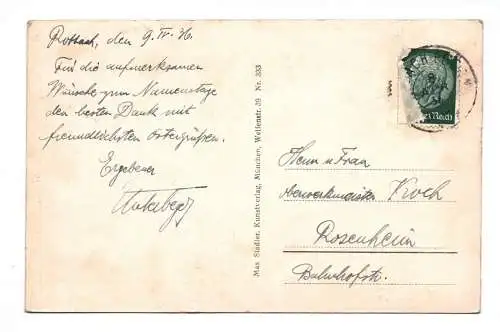 Rottach, den 9. IV. 36.
Für die aufmerksamen
Wünsche zum Namenstage
den besten Dank mit
freundlichsten Ostergrüßen.
Ergebener
Max Stadler, Kunstverlag, München, Welfenstr. 39 Nr. 333
Herrn u Frau
oberwerkmeister Koch
Rosenheim
Bahnhofstr.